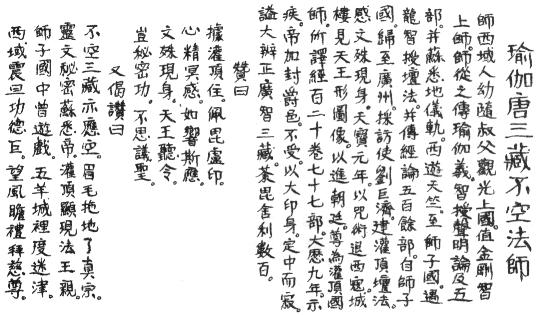 瑜伽唐三藏不空法師
師西域人幼隨叔父觀光上國。值金剛智
上師。師從之傳瑜伽義。智授聲明論及五
部并蘇悉地儀軌。西遊天竺。至師子國。遇
龍智授壇法并傳經論五百餘部。自師子
國歸至廣州。採訪使劉巨濟建灌頂壇法。
感文殊現身。天寶元年以咒術退西寇。城
樓見天王形圖像以進。朝廷尊為灌頂國
師。所譯經百二十卷七十七部。大曆九年示
疾。帝加封爵邑不受。以大印身。定中而寂。
謚大辨正廣智三藏。荼毘舍利數百。
贊曰
據灌頂住。佩毘盧印。
心精冥感。如響斯應。
文殊現身。天王聽令。
豈秘密功。不思議聖。
又偈讚曰
不空三藏示應空。眉毛拖地了真宗。
靈文秘密蘇悉帝。灌頂顯現法王親。
師子國中曾遊戲。五羊城裡度迷津。
西域震旦功德巨。望風瞻禮拜慈尊。